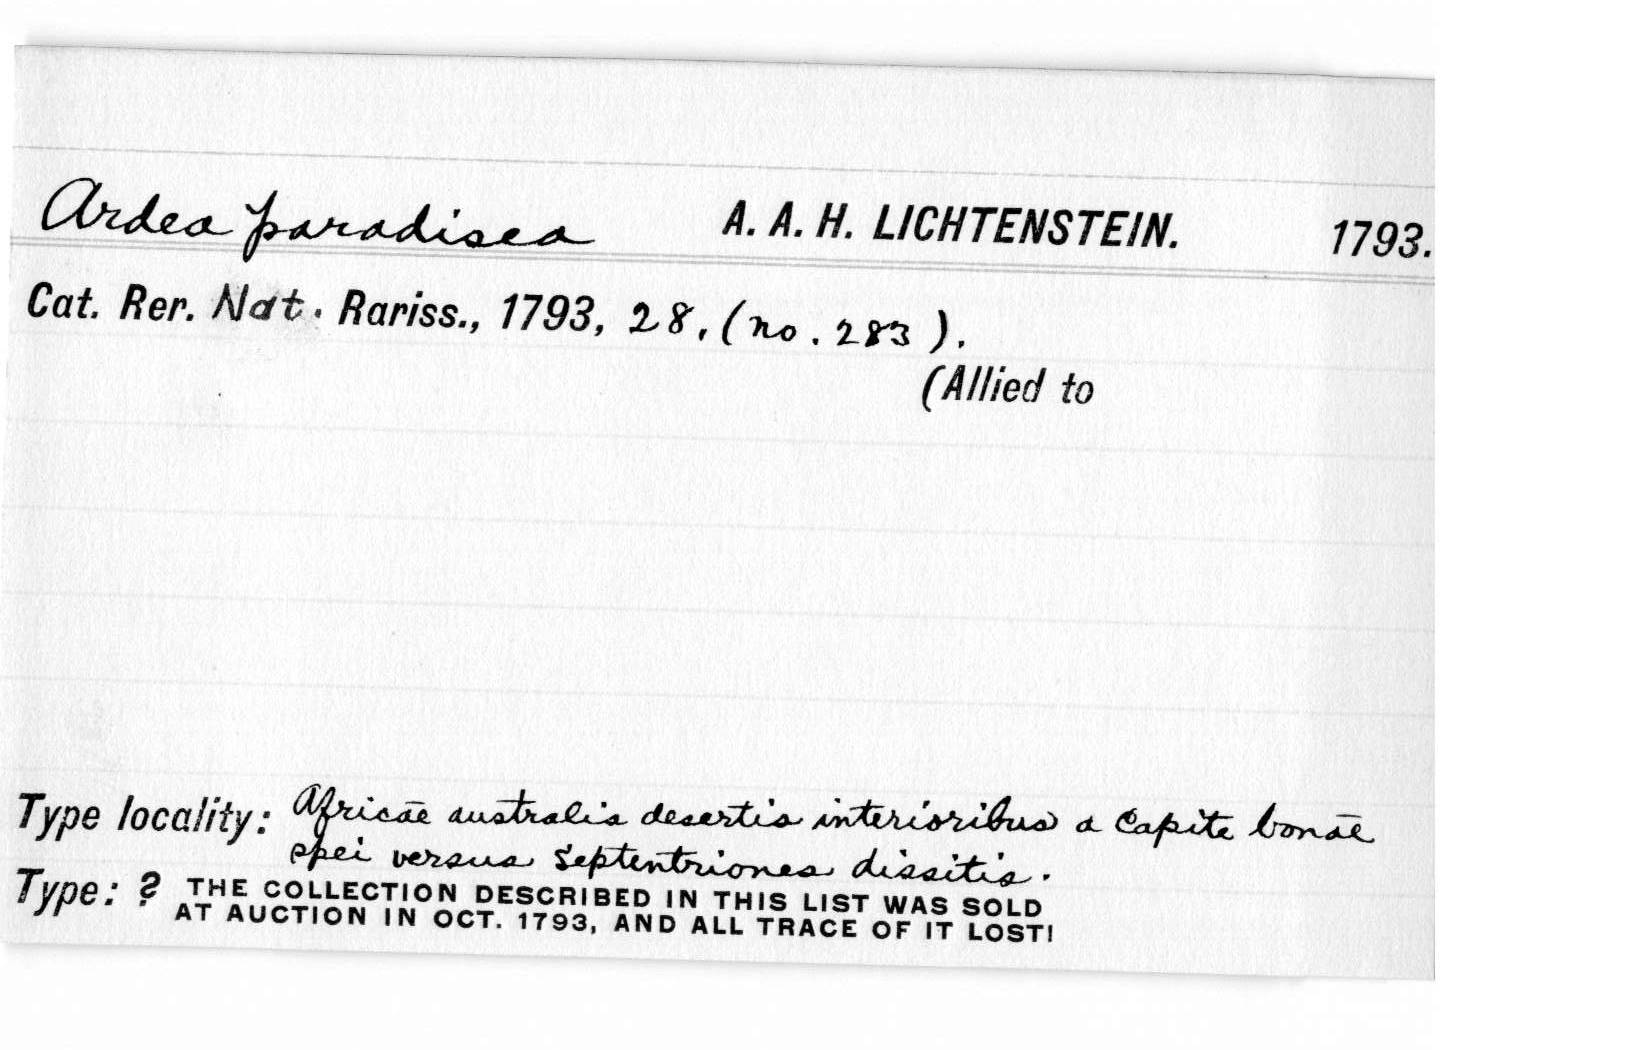 Ardea paradisea A. A. H. LICHTENSTEIN. 1793.
Cat. Rer. Nat. Rariss., 1793, 28, (no. 283).
(Allied to
Type locality: Africae australis desertis interioribus a Capite bonae
spei versus Septentriones dissitis.
Type: ? THE COLLECTION DESCRIBED IN THIS LIST WAS SOLD
AT AUCTION IN OCT. 1793, AND ALL TRACE OF IT LOST!